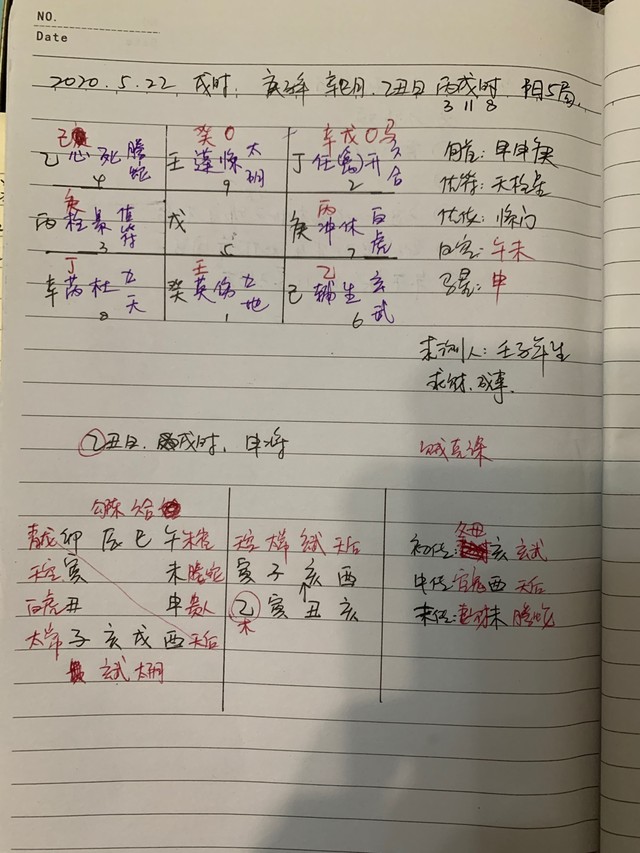 NO.
Date
2020.5.22 戌时, 庚子年 辛巳月. 乙丑日 丙戌时 阳5局.
3 11 8
己 癸 〇 辛戊 〇 马
乙 心 死 螣蛇 壬 蓬 惊 太阴 丁 任(禽)开 六合
4 9 2
庚 丙
丙 柱 景 值符 戊 庚 冲 休 白虎
3 5 7
丁 壬 乙
辛 芮 杜 九天 癸 英 伤 九地 己 辅 生 玄武
8 1 6
旬首: 甲申庚
值符: 天柱星
值使: 惊门
日空: 午未
马星: 申
求测人: 壬子年生
求财. 成事.
乙丑日. 戌时, 申将
勾陈 六合
青龙 卯 辰 巳 午 朱雀
天空 寅 未 螣蛇
白虎 丑 申 贵人
太常 子 亥 戌 酉 天后
玄武 太阴
天空 太常 玄武 天后
寅 子 亥 酉
乙 寅 丑 亥
木
父母
初传: 亥 玄武
中传: 官鬼 酉 天后
末传: 未 螣蛇